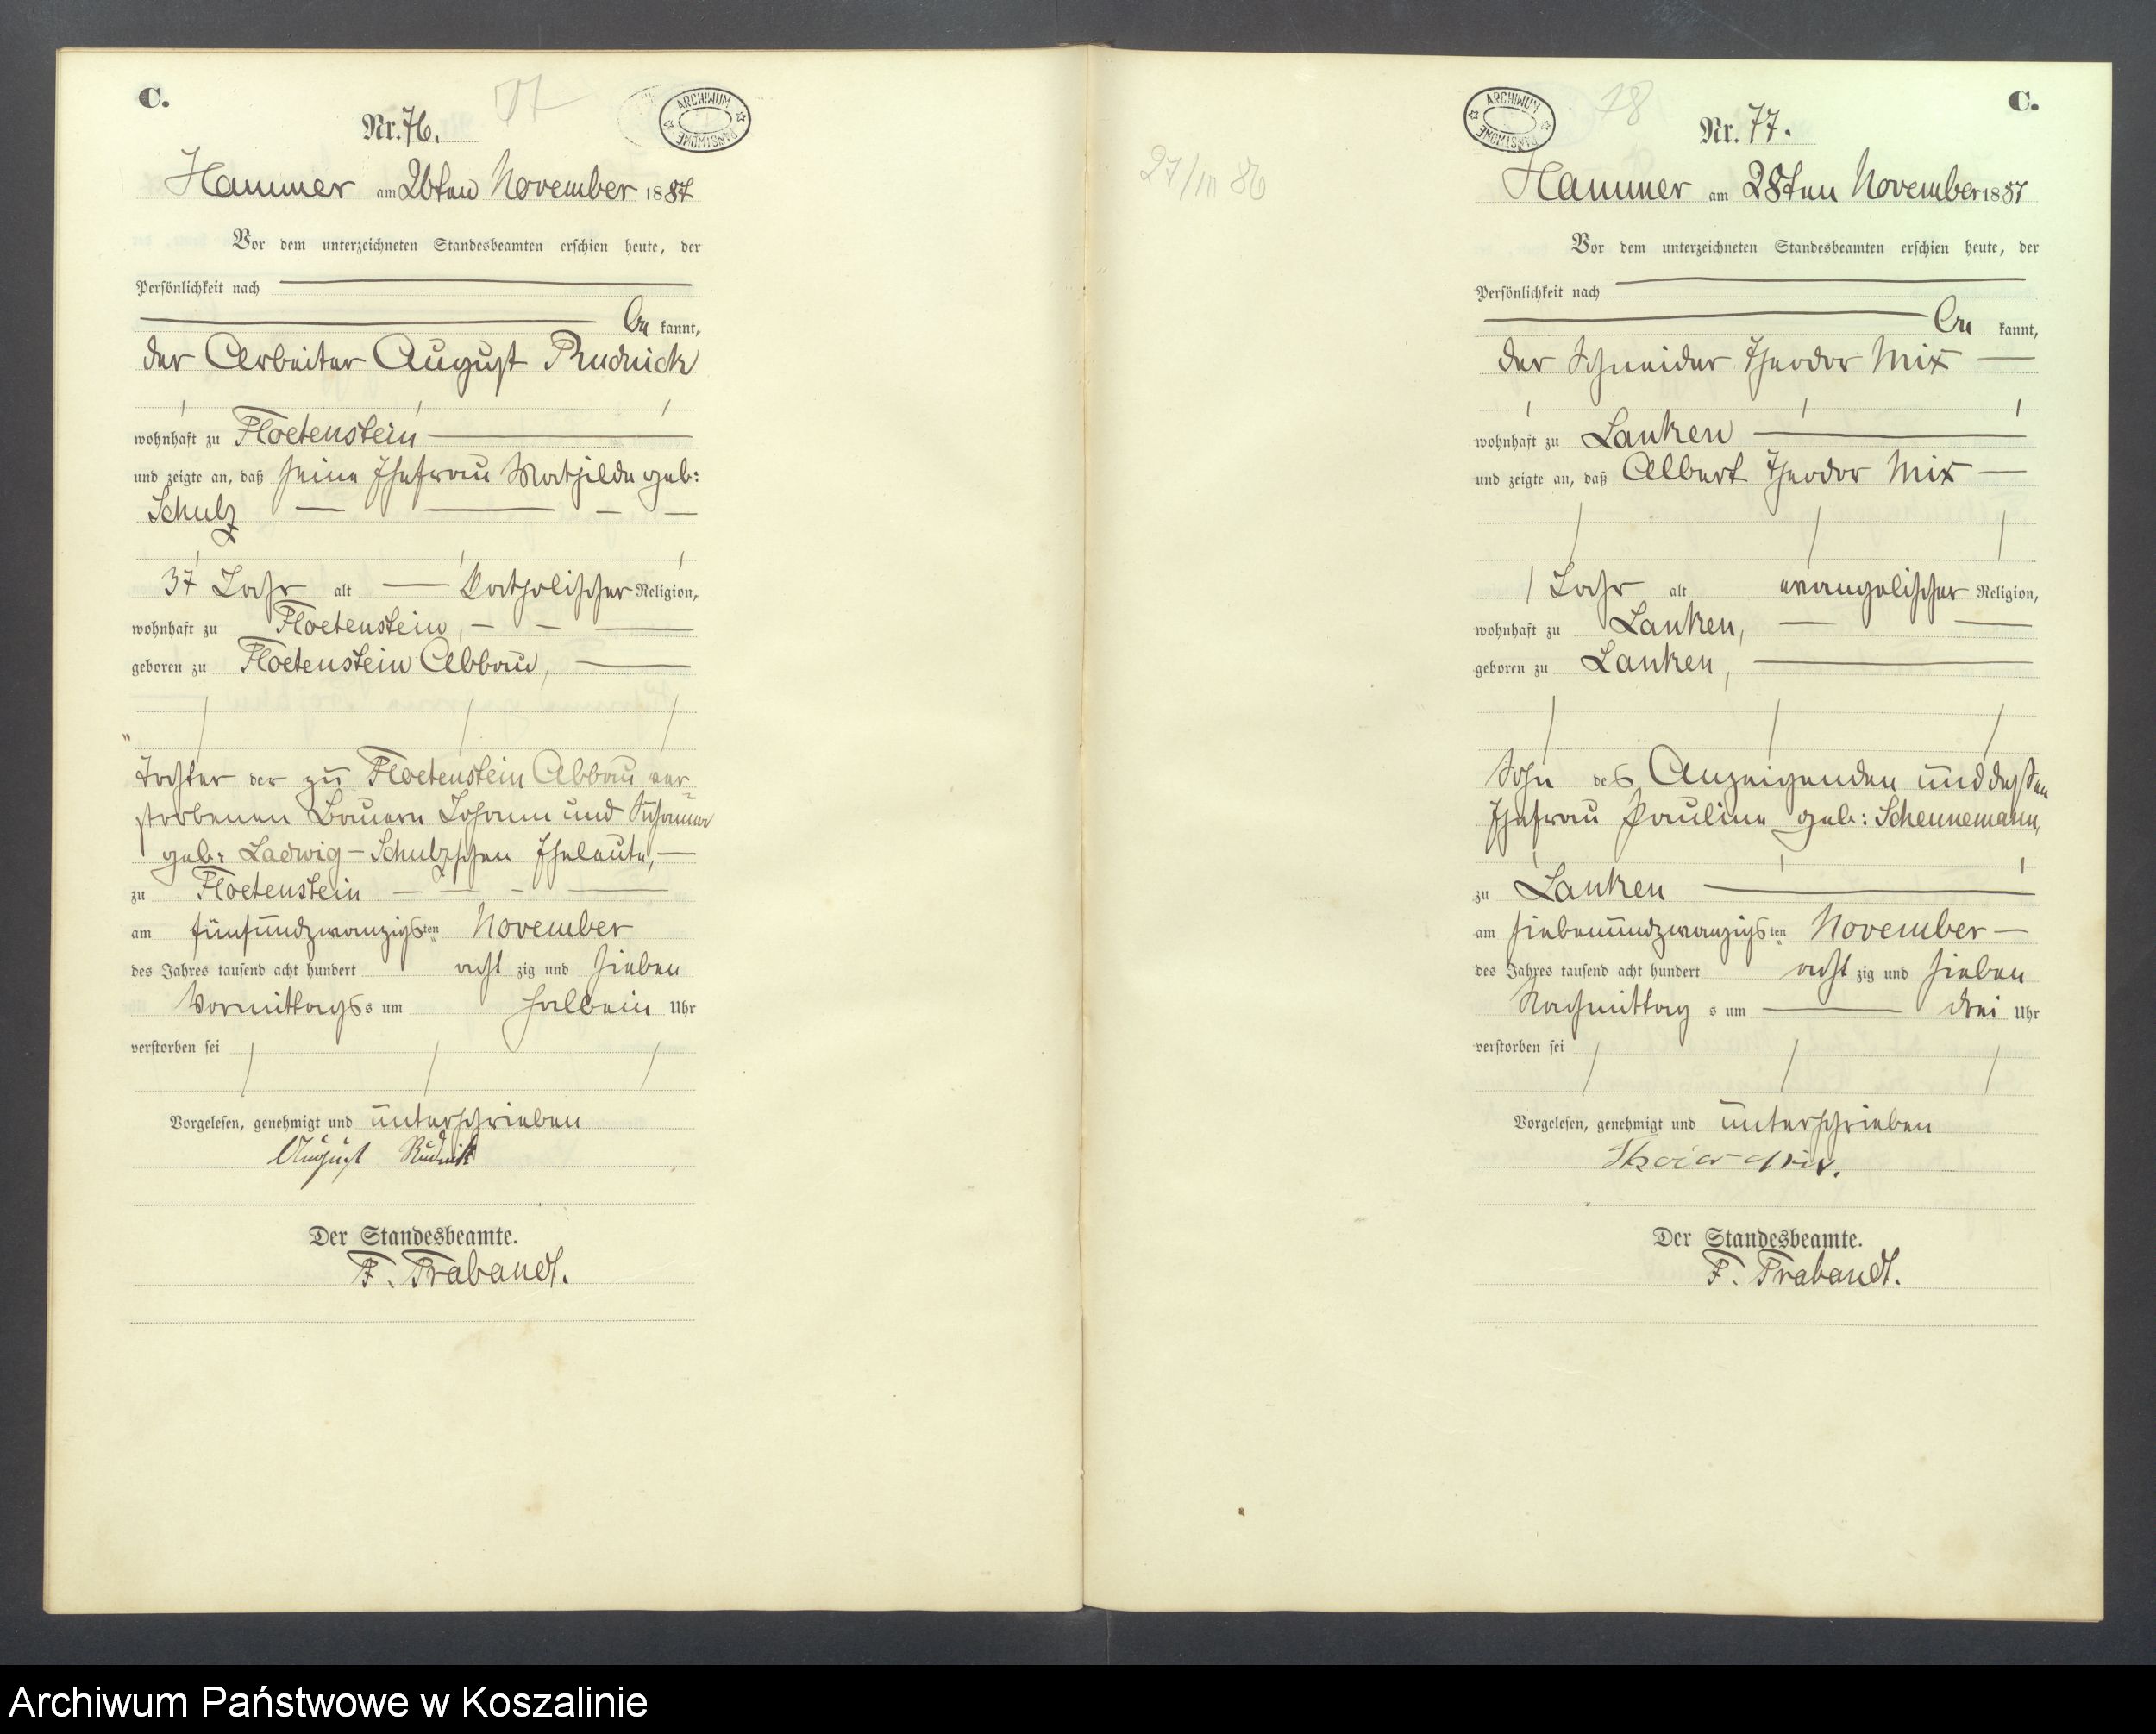 C.
77
ARCHIWUM PAŃSTWOWE
Nr. 76.
Hammer am 26ten November 1887
Vor dem unterzeichneten Standesbeamten erschien heute, der
Persönlichkeit nach
be kannt,
der Arbeiter August Rudnick
wohnhaft zu Floetenstein
und zeigte an, daß seine Ehefrau Mathilde geb:
Schulz
37 Jahr alt katholischer Religion,
wohnhaft zu Floetenstein,
geboren zu Floetenstein Abbau,
Tochter der zu Floetenstein Abbau ver-
storbenen Bauern Johann und Susanna
geb: Ladwig-Schulzschen Eheleute,
zu Floetenstein
am fünfundzwanzigsten November
des Jahres tausend acht hundert acht zig und sieben
Vormittags s um halb ein Uhr
verstorben sei
Vorgelesen, genehmigt und unterschrieben
August Rudnik
Der Standesbeamte.
F. Trabandt.
27/III 86
C.
78
ARCHIWUM PAŃSTWOWE
Nr. 77.
Hammer am 28ten November 1887
Vor dem unterzeichneten Standesbeamten erschien heute, der
Persönlichkeit nach
be kannt,
der Schneider Theodor Mix
wohnhaft zu Lanken
und zeigte an, daß Albert Theodor Mix
1 Jahr alt evangelischer Religion,
wohnhaft zu Lanken,
geboren zu Lanken,
Sohn des Anzeigenden und dessen
Ehefrau Pauline geb: Schennemann,
zu Lanken
am siebenundzwanzigsten November
des Jahres tausend acht hundert acht zig und sieben
Nachmittag s um drei Uhr
verstorben sei
Vorgelesen, genehmigt und unterschrieben
Mix.
Der Standesbeamte.
F. Trabandt.
Archiwum Państwowe w Koszalinie